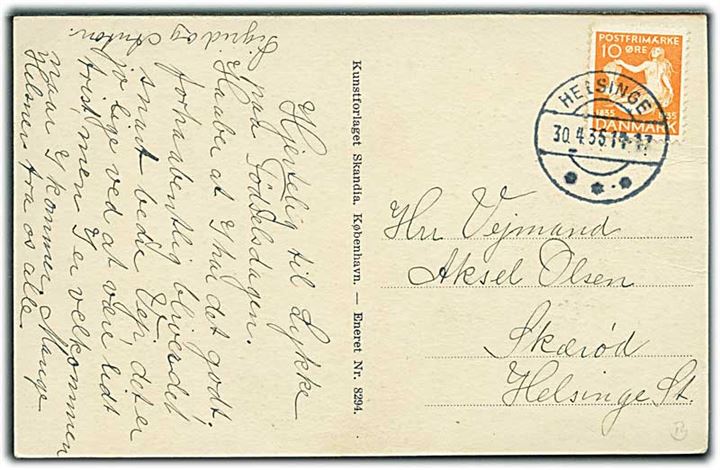 Hjertelig til Lykke
paa Födselsdagen.
Haaber at I har det godt,
forhaabentlig bliver det
snart bedre Vejr, det er
jo lige ved at være lidt
trist, men I er velkommen
naar I kommer. Mange
Hilsner fra os alle.
Sigrid og Anton.
Kunstforlaget Skandia. København. — Eneret Nr. 8294.
POSTFRIMÆRKE
10 ØRE
1835
35
DANMARK
HELSINGE
30.4.35.14-17
Hr. Vejmand
Aksel Olsen
Skærød
Helsinge St.